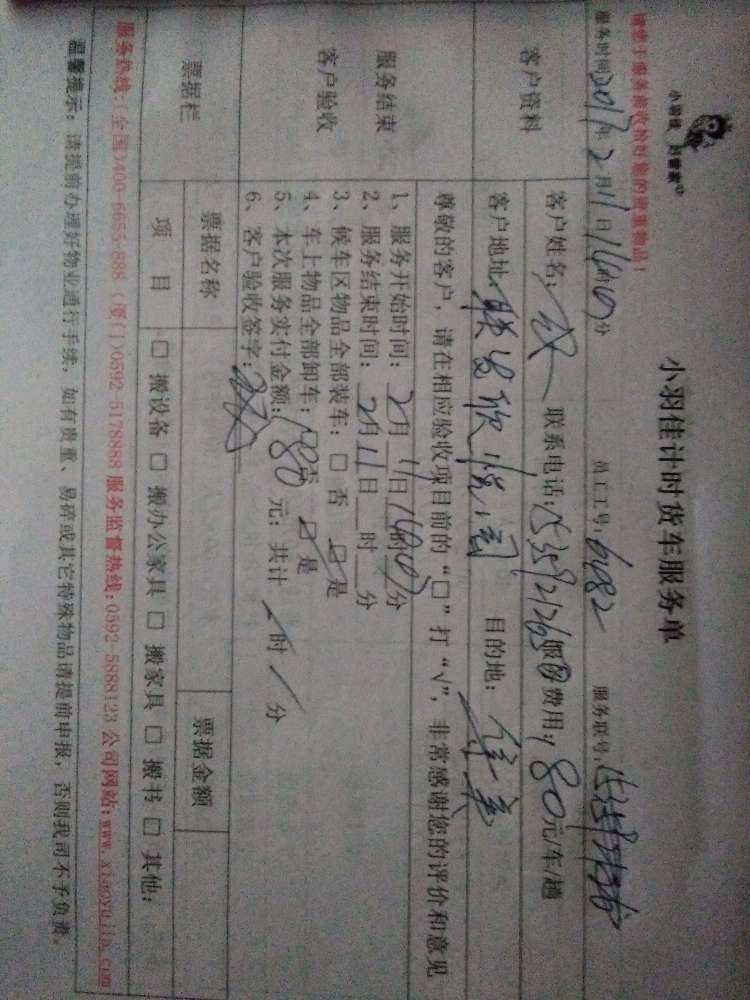 小羽佳 好管家
小羽佳计时货车服务单
请您于服务前收拾好您的贵重物品！
服务时间：2017年2月11日14时07分 员工工号：6082 服务联号：
客户资料
客户姓名： 联系电话： 服务费用：180元/车/趟
客户地址：联发欣悦 目的地：集美
尊敬的客户，请在相应验收项目前的“□”打“√”，非常感谢您的评价和意见
服务结束
客户验收
1、服务开始时间：2月11日14时07分
2、服务结束时间：2月11日 时 分
3、候车区物品全部装车：□ 否 ☑ 是
4、车上物品全部卸车：□ 否 ☑ 是
5、本次服务实付金额：180元；共计 时 分
6、客户验收签字：
票据栏
票据名称 票据金额
项 目 □ 搬设备 □ 搬办公家具 □ 搬家具 □ 搬书 □ 其他：
服务热线：(全国)400-6655-888 (厦门)0592-5178888 服务监督热线：0592-5888123 公司网站：www.xiaoyujia.com
温馨提示：请提前办理好物业通行手续，如有贵重、易碎或其它特殊物品请提前申报，否则我司不予负责。